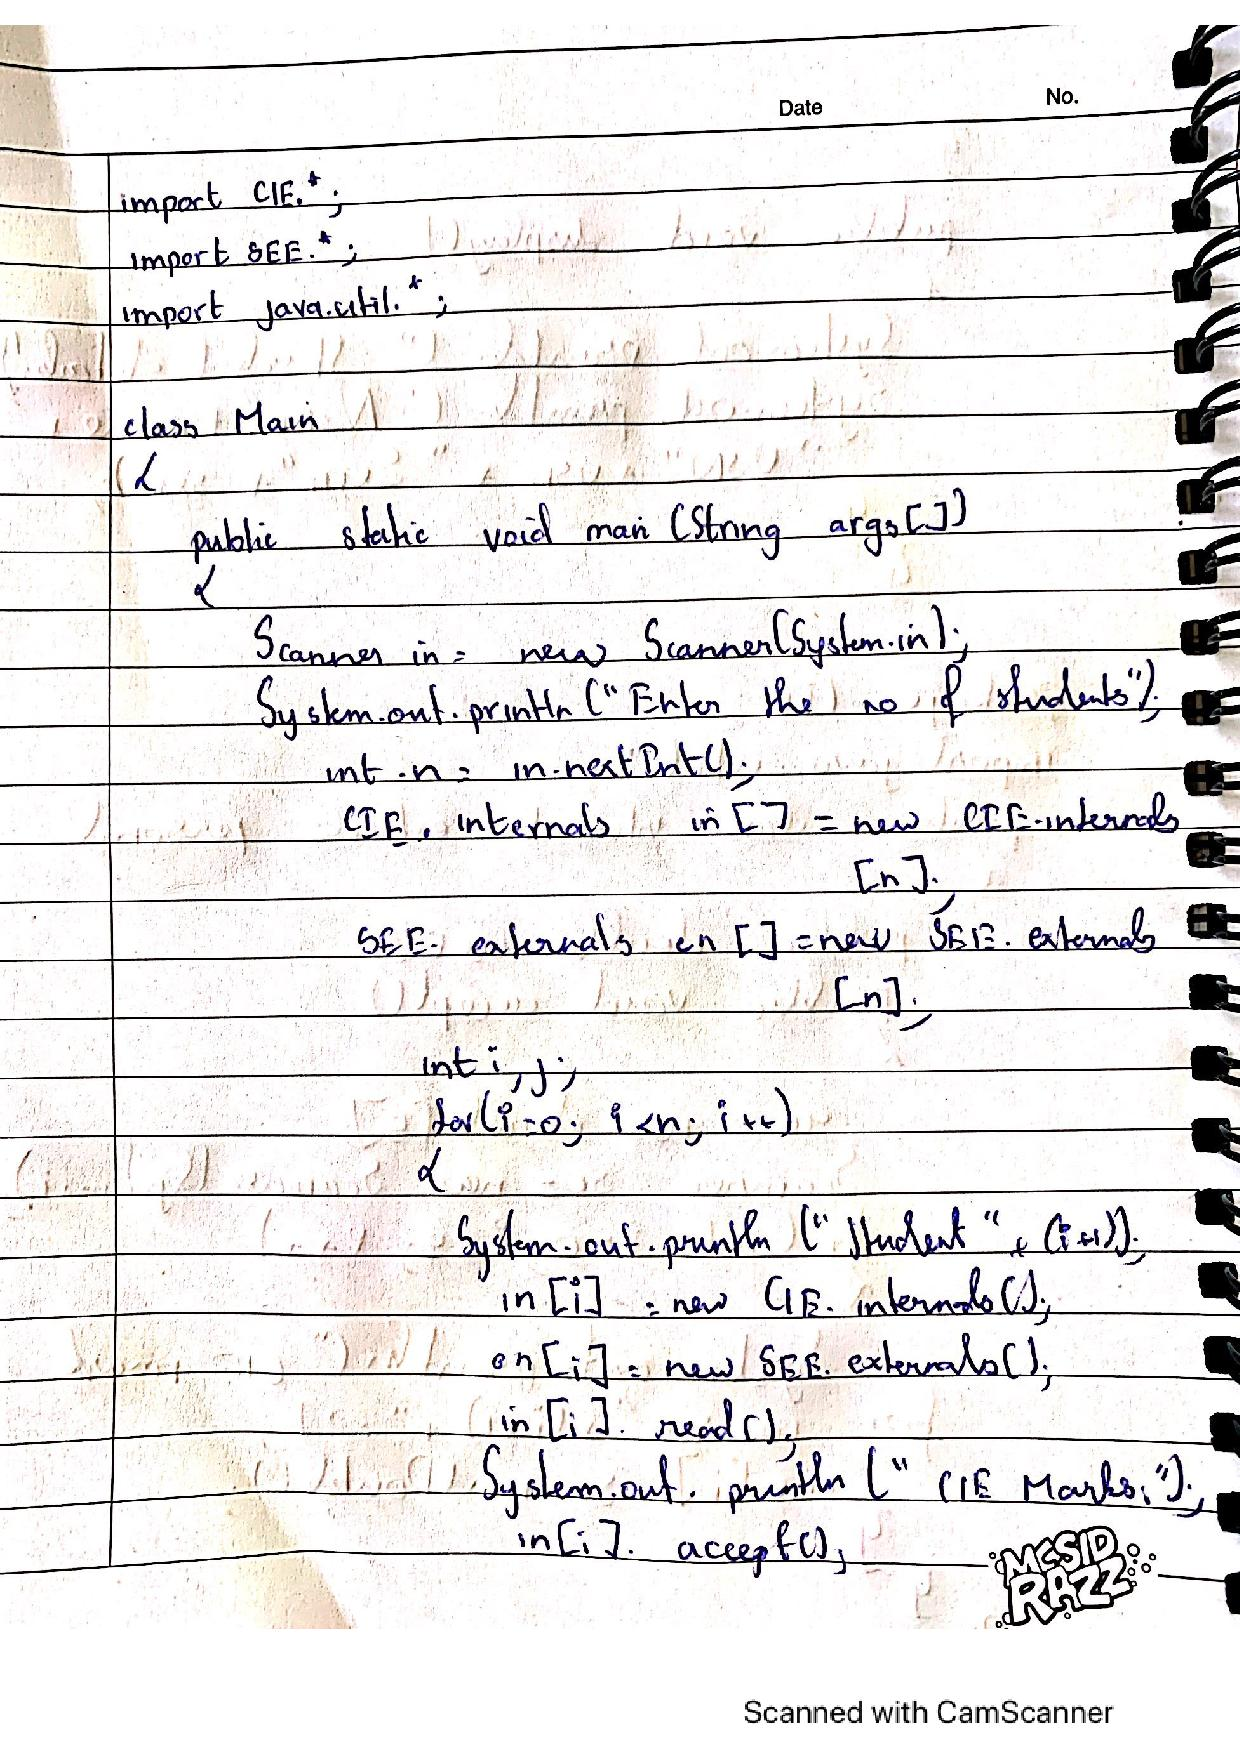 Date No.
import CIE.*;
import SEE.*;
import java.util.*;
class Main
{
public static void main (String args[])
{
Scanner in = new Scanner(System.in);
System.out.println ("Enter the no of students");
int n = in.nextInt();
CIE. internals in [] = new CIE.internals
[n];
SEE. externals en [] = new SEE. externals
[n];
int i, j;
for(i=0; i<n; i++)
{
System.out.println ("Student " + (i+1));
in [i] = new CIE. internals();
en[i] = new SEE. externals();
in [i]. read();
System.out. println (" CIE Marks:");
in[i]. accept();
MCSID
RAZZ
Scanned with CamScanner